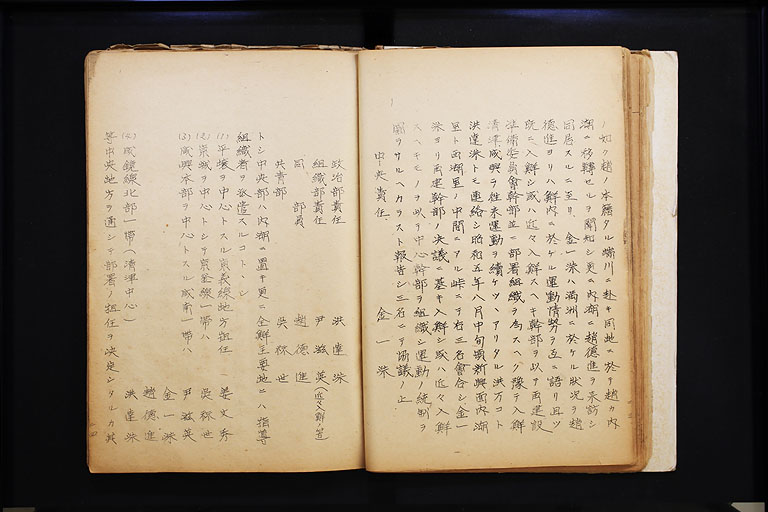 ノ如ク趙ノ本籍タル端川ニ赴キ同地ニ於テ趙カ内
湖ニ移轉セルヲ聞知シ更ニ内湖ニ趙德進ヲ来訪シ
同居スルニ至リ、金一洙ハ満洲ニ於ケル状況ヲ趙
德進ヨリハ鮮内ニ於ケル運動情勢ヲ互ニ語リ且ツ
既ニ入鮮シ或ハ近々入鮮スヘキ幹部ヲ以テ再建設
準備委員會幹部並ニ部署組織ヲ為スヘク豫テ入鮮
清津咸興ヲ往来運動ヲ續ケツヽアリタル洪万コト
洪達洙トモ連絡シ昭和五年八月中旬頃新興面内湖
里ト西湖里ノ中間ニアル峠ニテ右三名會合シ金一
洙ヨリ再建幹部ノ決議ニ基キ入鮮シ或ハ近々入鮮
スヘキモノヲ以テ中心幹部ヲ組織シ運動ノ統制ヲ
圖ラサルヘカラスト報告シ三名ニテ協議ノ上
中央責任 金一洙
政治部責任 洪達洙
組織部責任 尹滋英(近々入鮮ノ筈
同 部員 趙德進
共青部 吳称世
トシ中央部ハ内湖ニ置キ更ニ全鮮主要地ニハ指導
組織者ヲ派遣スルコトヽシ
(1)平壌ヲ中心トスル京義線地方担任 姜文秀
(2)京城ヲ中心トシテ京釜線一帯ハ 吳称世
(3)咸興本部ヲ中心トスル咸南一帯ハ 尹滋英
金一洙
趙德進
(4)咸鏡線北部一帯ヘ(清津中心) 洪達洙
等中央地方ヲ通シテ部署ノ担任ヲ決定シタルカ其